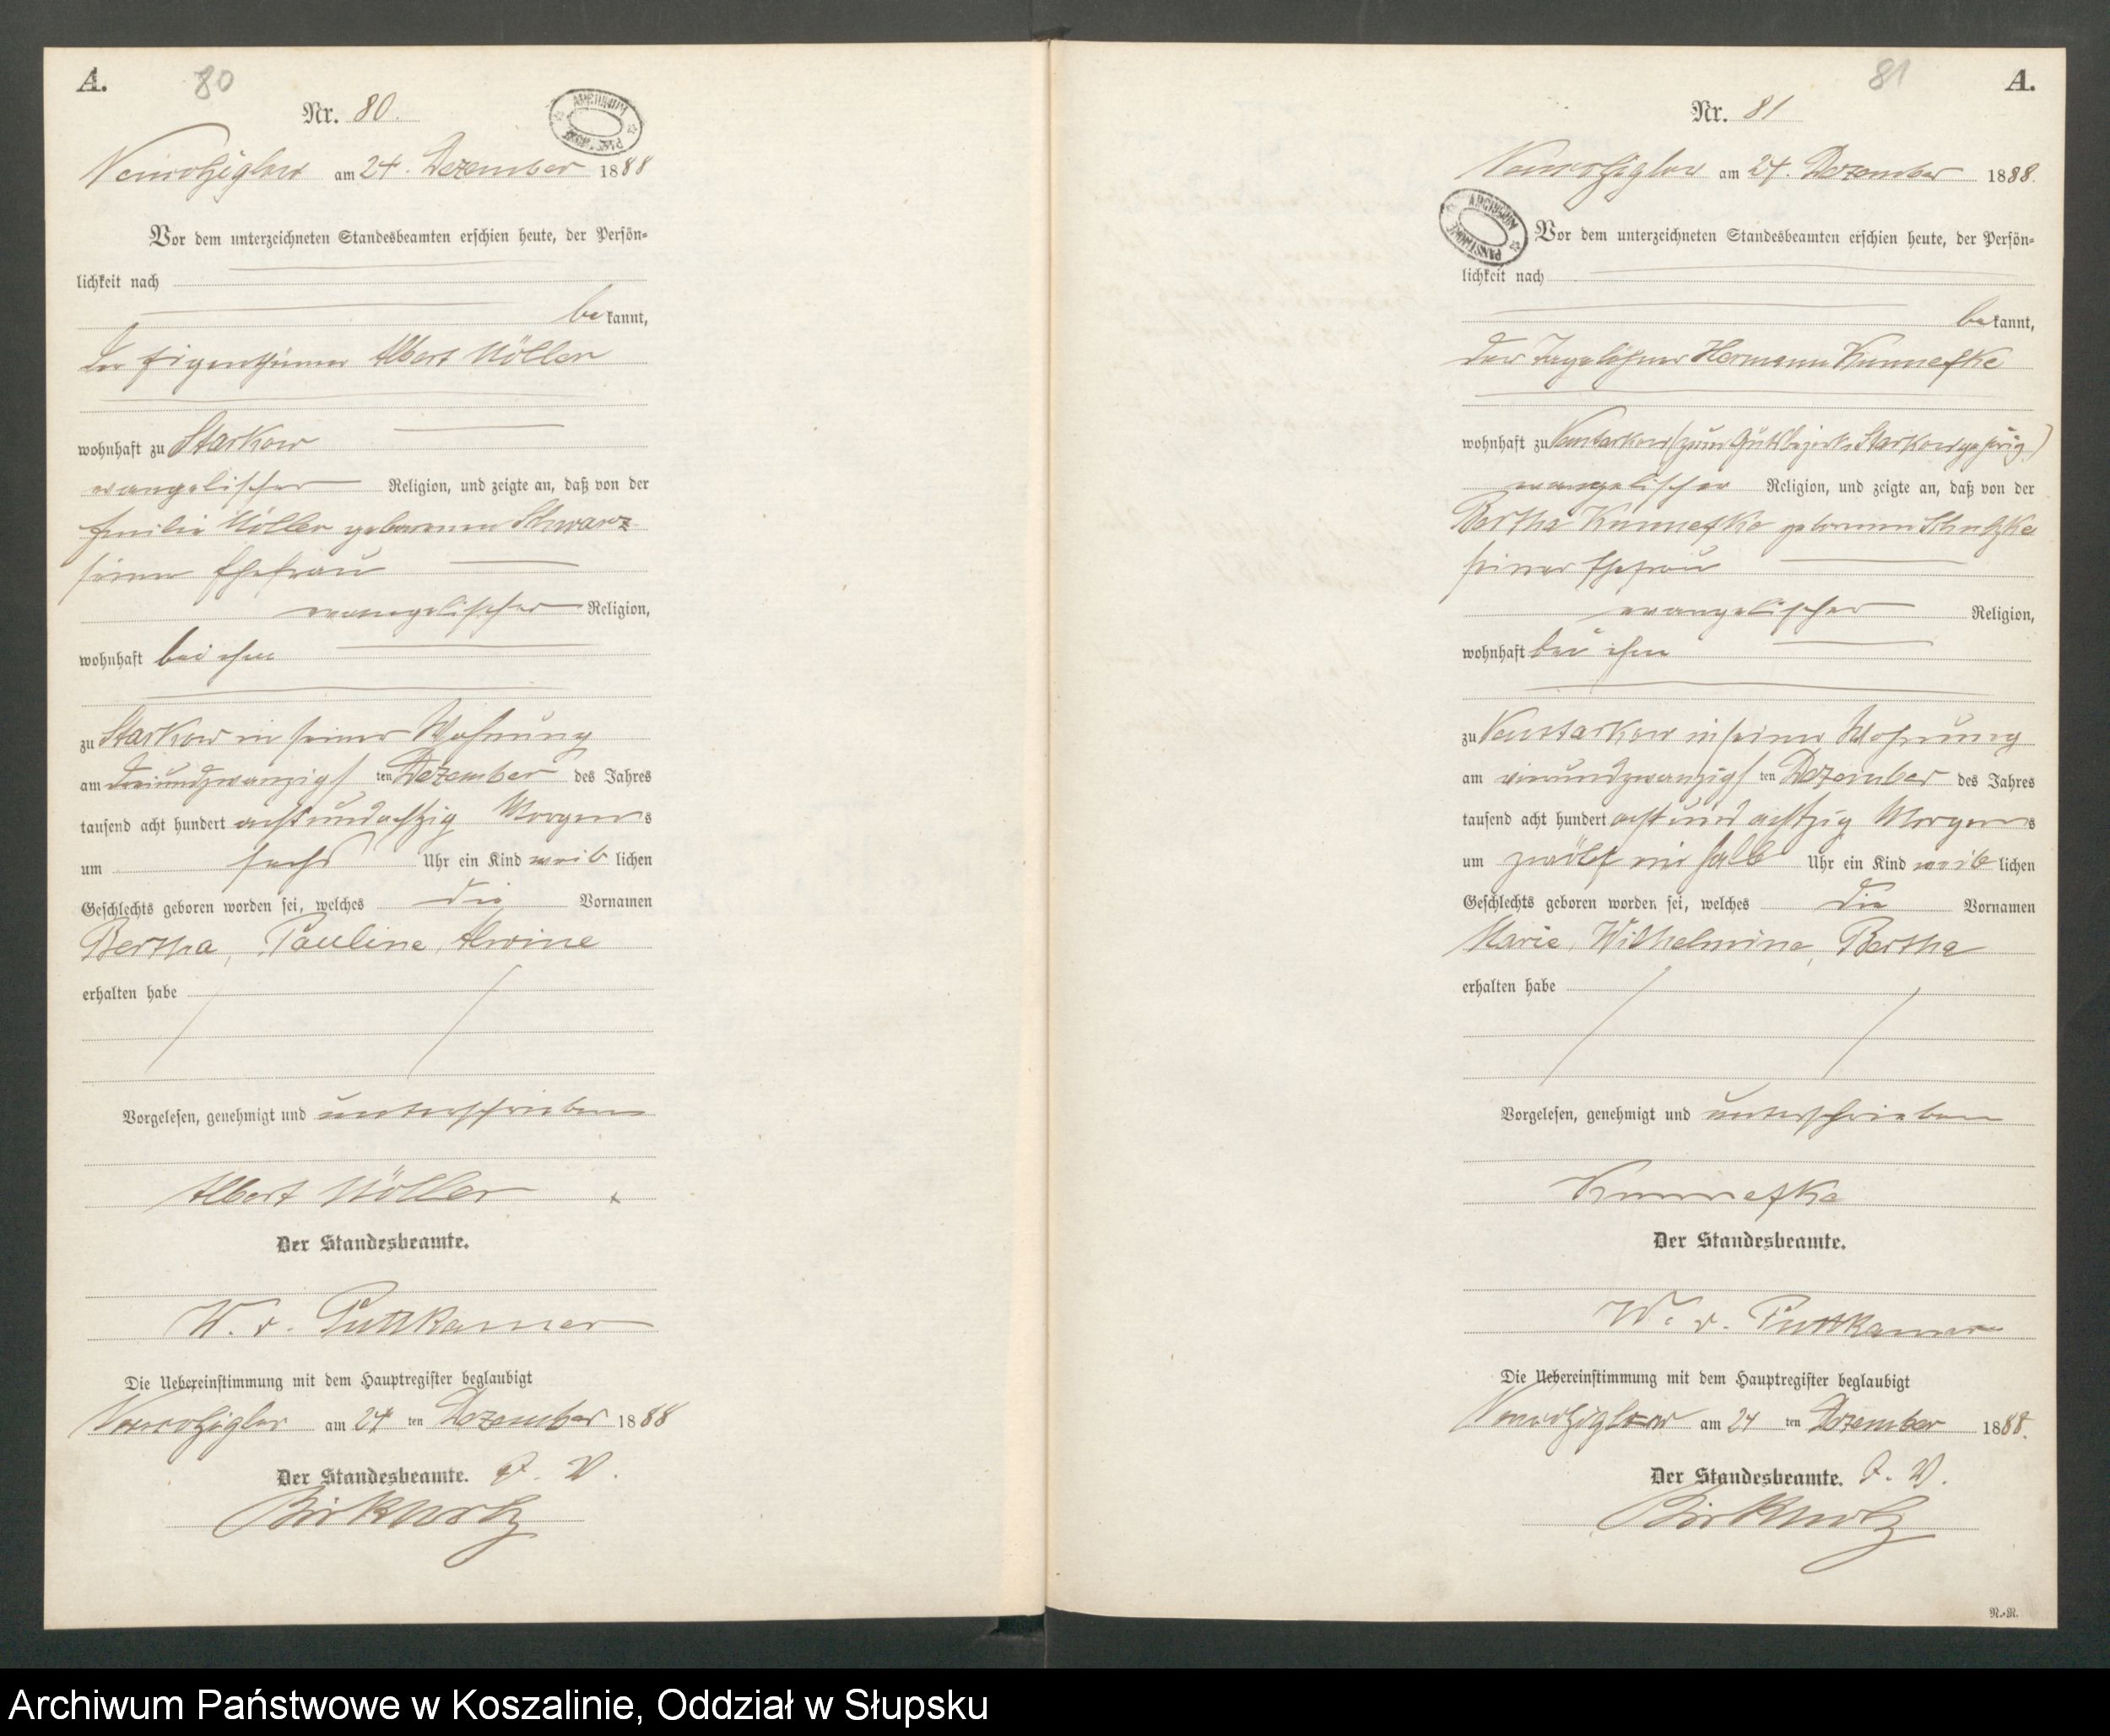 A.
80
Nr. 80.
ARCHIWUM PAŃSTWOWE
am 24. Dezember 1888
Vor dem unterzeichneten Standesbeamten erschien heute, der Persön-
lichkeit nach
bekannt,
der Eigenthümer Albert Möller
wohnhaft zu Starkow
evangelischer Religion, und zeigte an, daß von der
Emilie Möller geborenen Schwarz
seiner Ehefrau
evangelischer Religion,
wohnhaft bei ihm
zu Starkow in seiner Wohnung
am dreiundzwanzigsten Dezember des Jahres
tausend acht hundert achtundachtzig Morgens
um sechs Uhr ein Kind weiblichen
Geschlechts geboren worden sei, welches die Vornamen
Bertha, Pauline, Alwine
erhalten habe
Vorgelesen, genehmigt und unterschrieben
Albert Möller
Der Standesbeamte.
W. v. Puttkamer
Die Uebereinstimmung mit dem Hauptregister beglaubigt
am 24ten Dezember 1888
Der Standesbeamte. J. V.
81
A.
Nr. 81
am 24. Dezember 1888.
ARCHIWUM PAŃSTWOWE
Vor dem unterzeichneten Standesbeamten erschien heute, der Persön-
lichkeit nach
bekannt,
der Tagelöhner Hermann Kunnefke
wohnhaft zu Neustarkow (zum Gutsbezirk Starkow gehörig)
evangelischer Religion, und zeigte an, daß von der
Bertha Kunnefke geborenen
seiner Ehefrau
evangelischer Religion,
wohnhaft bei ihm
zu Neustarkow in seiner Wohnung
am vierundzwanzigsten Dezember des Jahres
tausend acht hundert acht und achtzig Morgens
um zwölf ein halb Uhr ein Kind weiblichen
Geschlechts geboren worden sei, welches die Vornamen
Marie, Wilhelmine, Bertha
erhalten habe
Vorgelesen, genehmigt und unterschrieben
Kunnefke
Der Standesbeamte.
W. v. Puttkamer
Die Uebereinstimmung mit dem Hauptregister beglaubigt
am 24ten Dezember 1888.
Der Standesbeamte. J. V.
N.-R.
Archiwum Państwowe w Koszalinie, Oddział w Słupsku